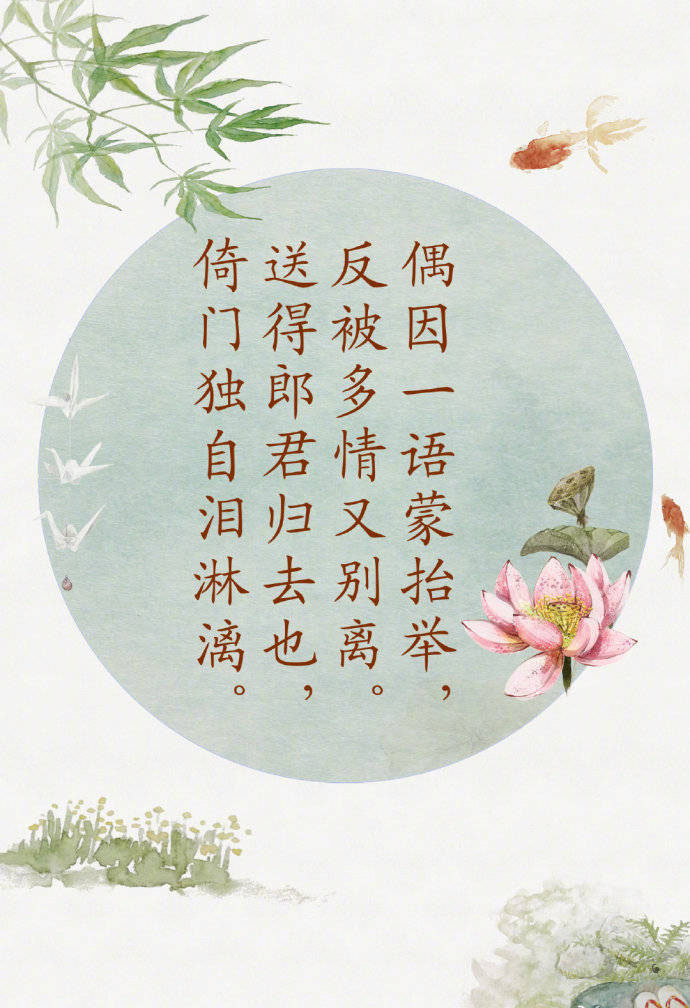 偶因一语蒙抬举，
反被多情又别离。
送得郎君归去也，
倚门独自泪淋漓。